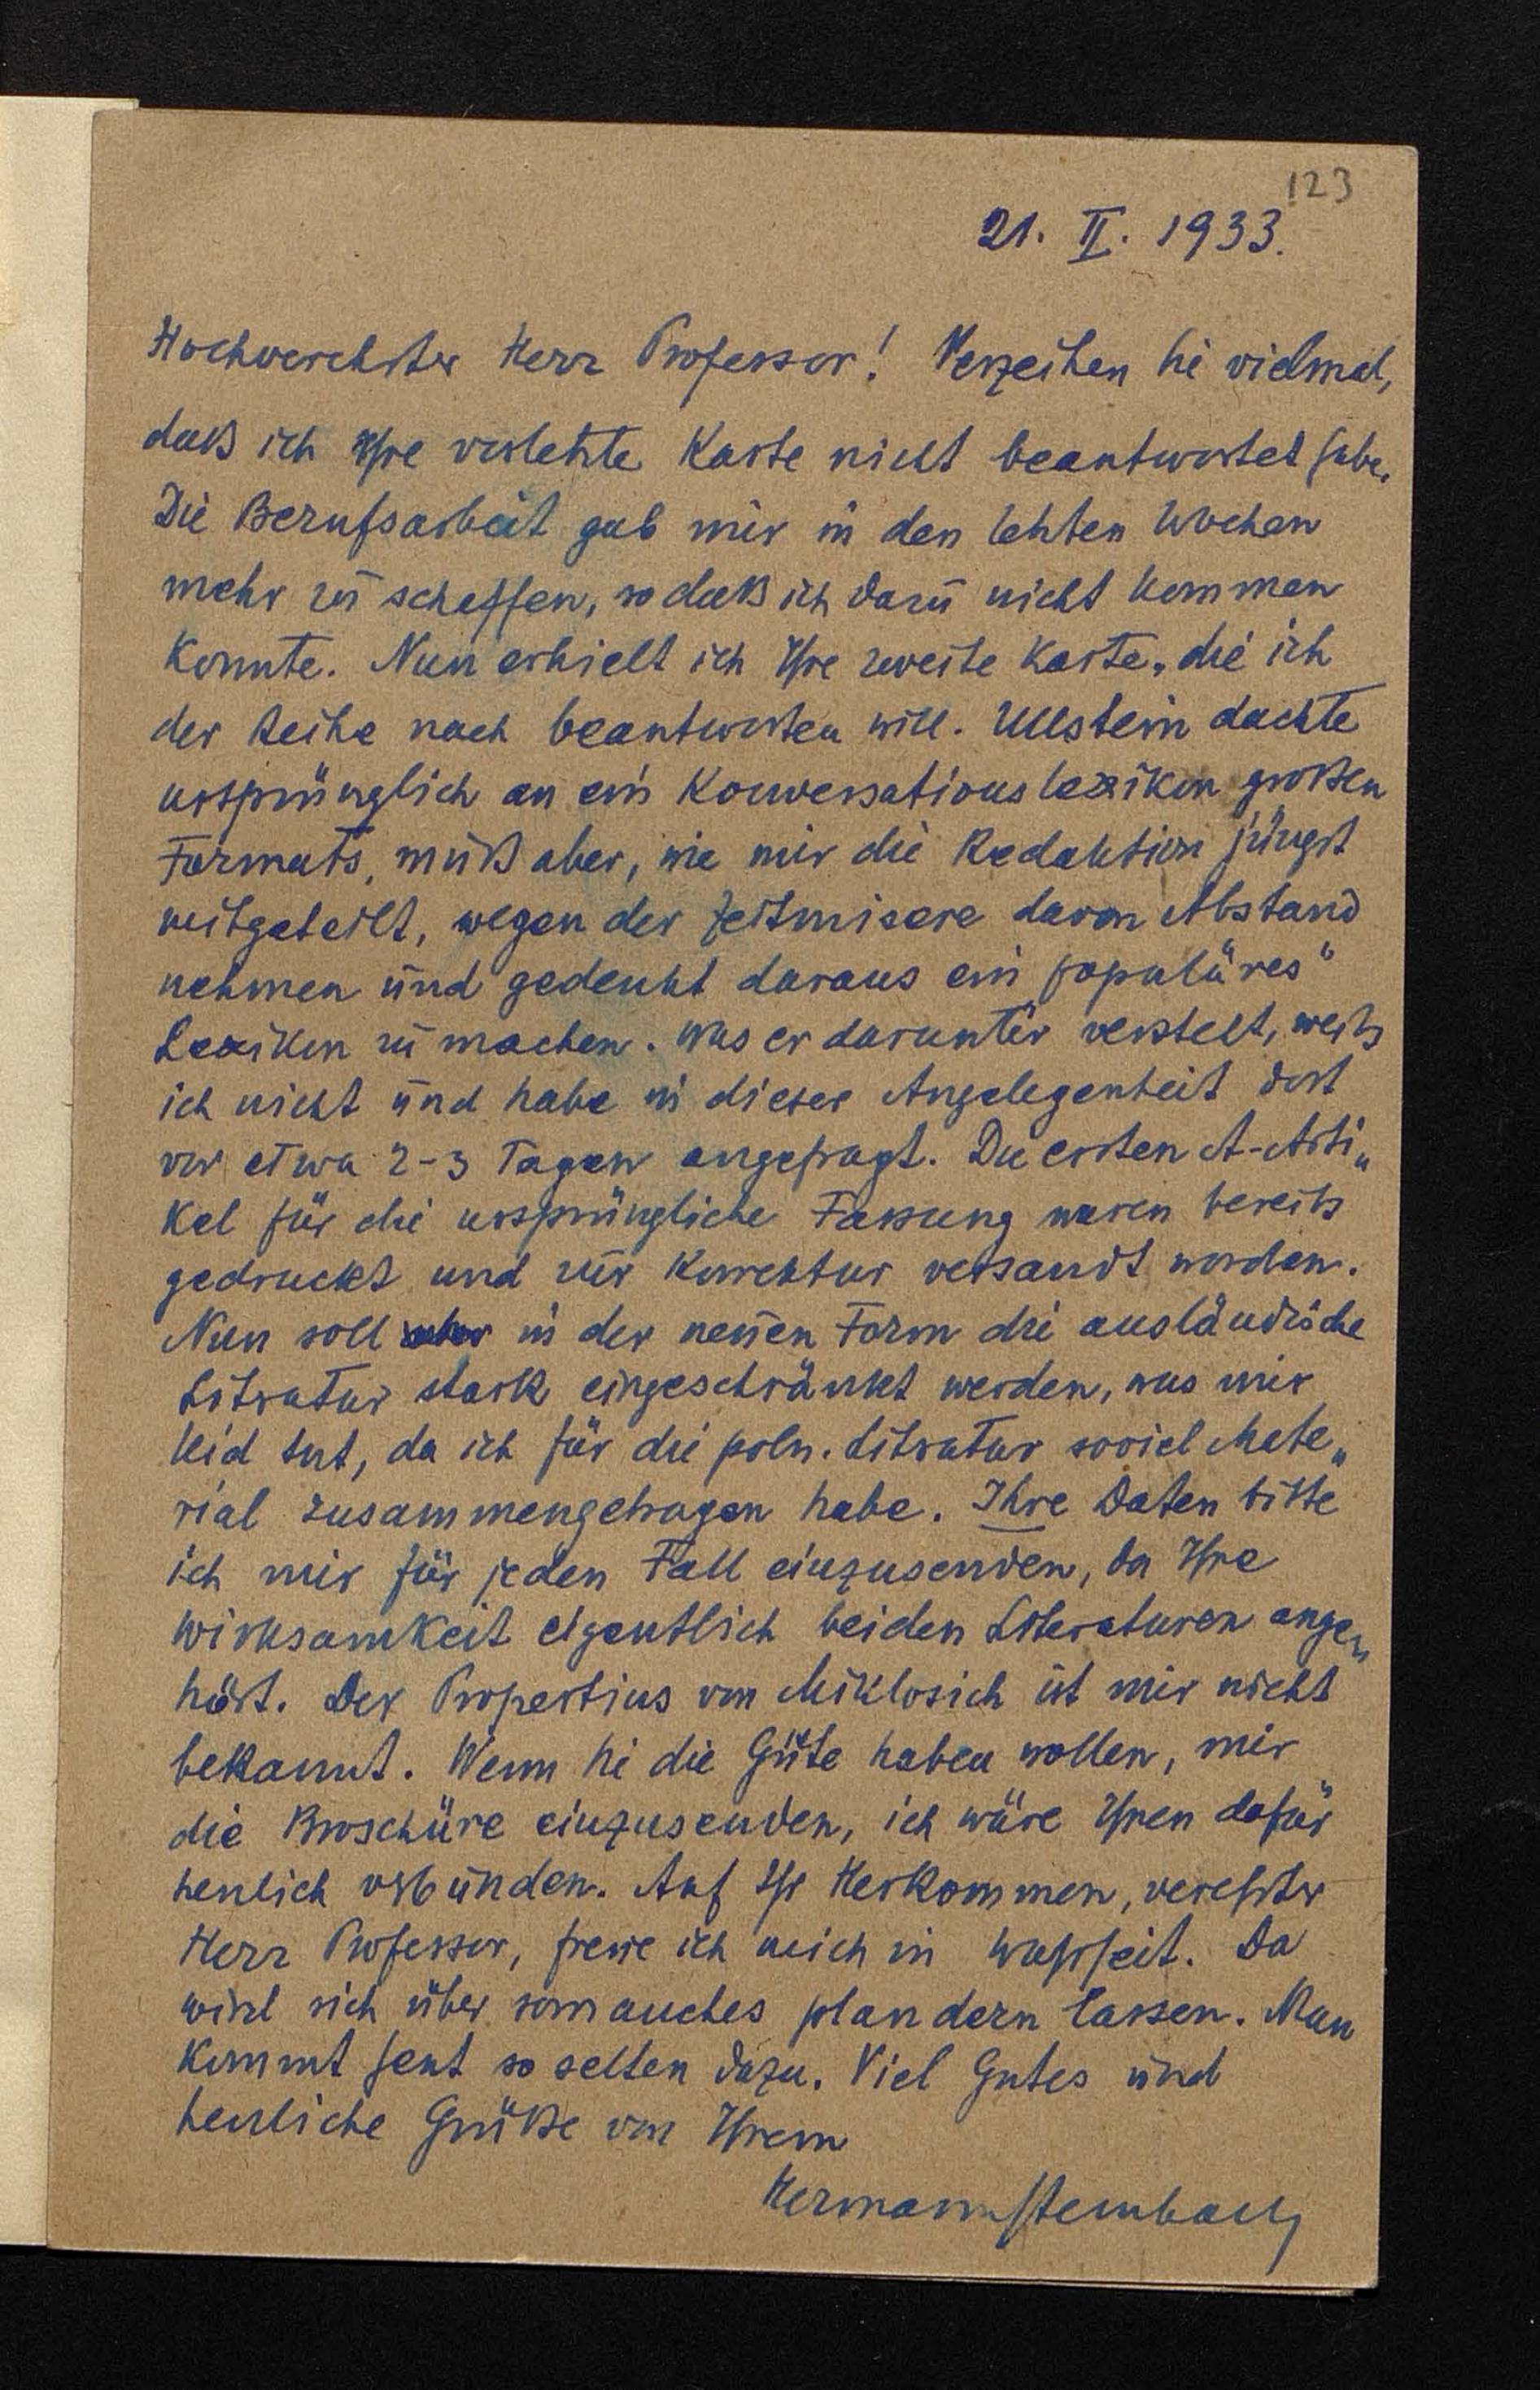 123
21. II. 1933.
Hochverehrter Herr Professor! Verzeihen Sie vielmal,
daß ich Ihre vorletzte Karte nicht beantwortet habe.
Die Berufsarbeit gab mir in den letzten Wochen
mehr zu schaffen, so daß ich dazu nicht kommen
konnte. Nun erhielt ich Ihre zweite Karte, die ich
der Reihe nach beantworten will. Ullstein dachte
ursprünglich an ein Konversationslexikon großen
Formats, muß aber, wie mir die Redaktion jüngst
mitgeteilt, wegen der Zeitmisere davon Abstand
nehmen und gedenkt daraus ein populäres"
Lexikon zu machen. Was er darunter versteht, weiß
ich nicht und habe in dieser Angelegenheit dort
vor etwa 2-3 Tagen angefragt. Die ersten A-Arti„
kel für die ursprüngliche Fassung waren bereits
gedruckt und zur Korrektur versandt worden.
Nun soll aber in der neuen Form die ausländische
Litratur stark eingeschränkt werden, was mir
leid tut, da ich für die poln. Litratur soviel Mate„
rial zusammengetragen habe. Ihre Daten bitte
ich mir für jeden Fall einzusenden, da Ihre
Wirksamkeit eigentlich beiden Literaturen ange„
hört. Der Propertius von Miklosich ist mir nicht
bekannt. Wenn Sie die Güte haben wollen, mir
die Broschüre einzusenden, ich wäre Ihnen dafür
herzlich verbunden. Auf Ihr Herkommen, verehrter
Herr Professor, freue ich mich in Wahrheit. Da
wird sich über somanches plaudern lassen. Man
kommt heut so selten dazu. Viel Gutes und
herzliche Grüße von Ihrem
Hermann Sternbach